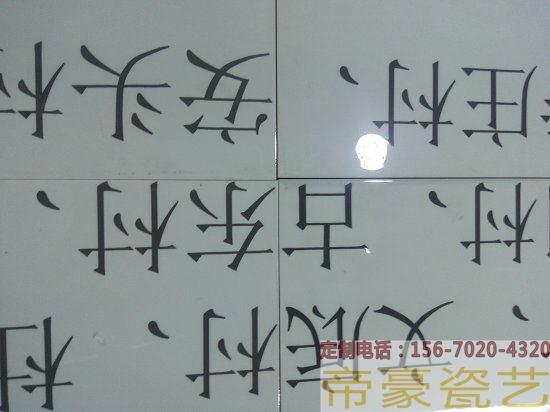 、文底村、杜
村、古东村、
庄村、安头村
定制电话：156-7020-4320
帝豪瓷艺